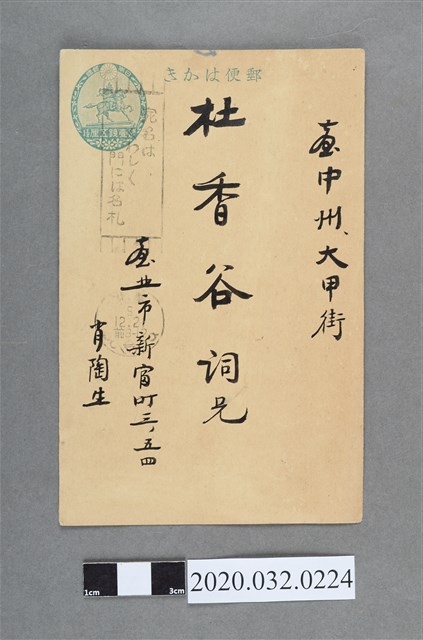 郵便はかき
臺中州、大甲街
杜香谷詞兄
臺北市新富町三ノ五四
肖陶生
宛名は、
わしく
門には名札
1cm
3cm
2020.032.0224